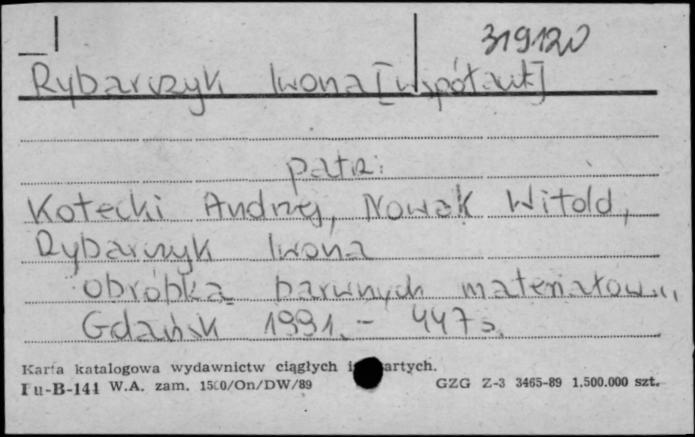 319120
Rybarczyk Iwona [współaut]
patrz:
Kotecki Andrzej, Nowak Witold,
Rybarczyk Iwona
obróbka barwnych materiałów...
Gdańsk 1991. - 447 s.
Karta katalogowa wydawnictw ciągłych i artych.
Pu-B-141 W.A. zam. 1500/On/DW/89 GZG Z-3 3465-89 1.500.000 szt.